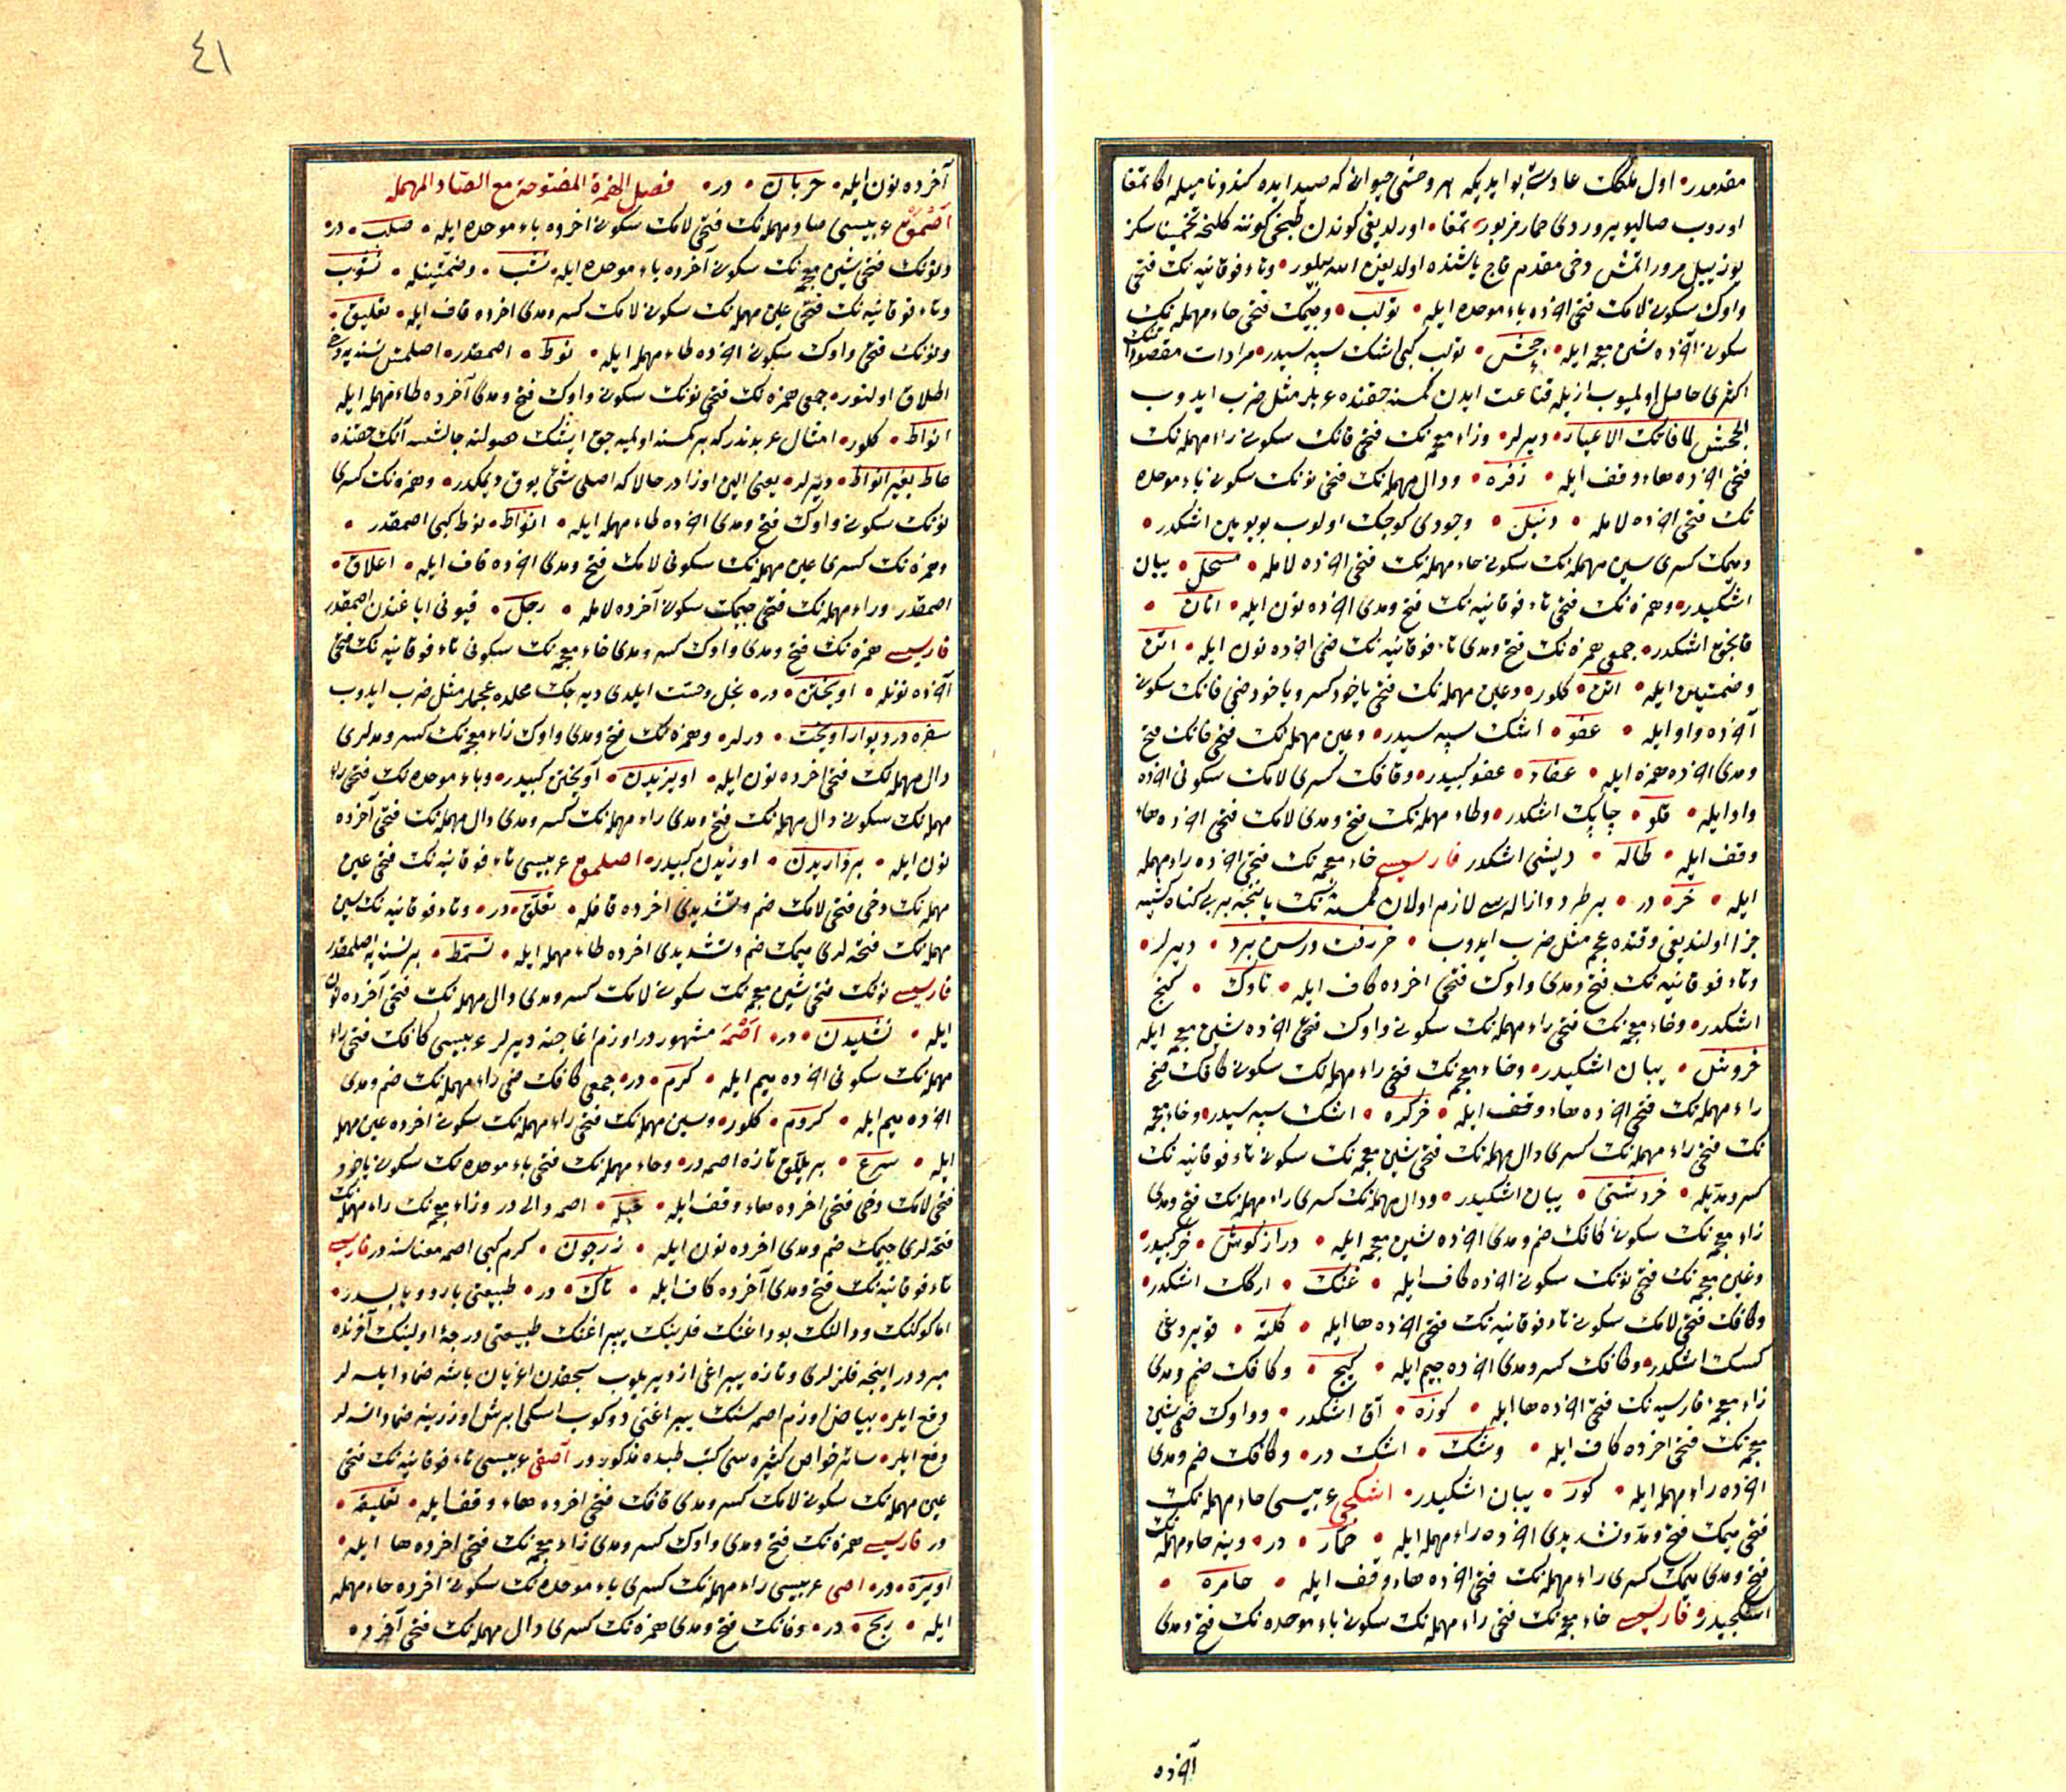 مقدمدر اول ملكك عادتی بو ایدیكه هر وحشی حیوان كه صید ایده كندو نامیله اكا تمغا
اوروب صالیویروردی حمار مزبور تمغا اورلدیغی كوندن طبخی كوننه كلنجه تخمینا سكز
یوز ییل مرور اتمش دخی مقدم قاچ یاشنده اولدیغن الله بیلور وتاء فوقانیه نك فتحی
واوك سكونی لامك فتحی آخرده باء موحده ایله تولب وجیمك فتحی حاء مهمله نك
سكونی آخرده شین معجمه ایله جحش تولب كبی اشك سپه سیدر مرادات مقصوده نك
اكثری حاصل اولمیوب ازیله قناعت ایدن كمسنه حقنده عربلر مثل ضرب ایدوب
الجحش لما فاتك الاعیار دیرلر وزاء معجمه نك فتحی فانك سكونی راء مهمله نك
فتحی آخرده هاء وقف ایله زفره ودال مهمله نك فتحی نونك سكونی باء موحده
نك فتحی آخرده لامله دنبل وجودی كوچك اولوب بویو یین اشكدر
ومیمك كسری سین مهمله نك سكونی حاء مهمله نك فتحی آخرده لامله مسحل یبان
اشكیدر وهمزه نك فتحی تاء فوقانیه نك فتح ومدی آخرده نون ایله اتان
قانجق اشكدر جمعی همزه نك فتح ومدی تاء فوقانیه نك ضمی آخرده نون ایله اتن
وضمتین ایله اتن كلور وعین مهمله نك فتحی یاخود كسر ویاخود ضمی فانك سكونی
آخرده واو ایله عفو اشك سپه سیدر وعین مهمله نك فتحی فانك فتح
ومدی آخرده همزه ایله عفاء عفو كبیدر وقافك كسری لامك سكونی آخرده
واو ایله قلو چاپك اشكدر وطاء مهمله نك فتح ومدی لامك فتحی آخرده هاء
وقف ایله طاله دیشی اشكدر فارسیسی خاء معجمه نك فتحی آخرده راء مهمله
ایله خر در بر طرد وازاله سی لازم اولان كمسنه نك یاننجه بر بی كناه كشیه
جزا اولندیغی وقتده عجم مثل ضرب ایدوب خر رفت ورسن برد دیرلر
وتاء فوقانیه نك فتح ومدی واوك فتحی آخرده كاف ایله تاوك كنج
اشكدر وخاء معجمه نك فتحی راء مهمله نك سكونی واوك فتحی آخرده شین معجمه ایله
خروش یبان اشكیدر وخاء معجمه نك فتحی راء مهمله نك سكونی كافك فتح
راء مهمله نك فتحی آخرده هاء وقف ایله خركره اشك سپه سیدر وخاء معجمه
نك فتحی راء مهمله نك كسری دال مهمله نك فتحی شین معجمه نك سكونی تاء فوقانیه نك
كسر ومدیله خردشتی یبان اشكیدر ودال مهمله نك كسری راء مهمله نك فتح ومدی
زاء معجمه نك سكونی كافك ضم ومدی آخرده شین معجمه ایله درازكوش خر كبیدر
وغین معجمه نك فتحی نونك سكونی آخرده كاف ایله غنك اركك اشكدر
وكافك فتحی لامك سكونی تاء فوقانیه نك فتحی آخرده ها ایله كلته قویروغی
كسك اشكدر وكافك كسر ومدی آخرده جیم ایله كیج وكافك ضم ومدی
زاء معجمه فارسیه نك فتحی آخرده ها ایله كوزه آق اشكدر وواوك ضمی شین
معجمه نك فتحی آخرده كاف ایله وشك اشك در وكافك ضم ومدی
آخرده راء مهمله ایله كور یبان اشكیدر اشكجی عربیسی حاء مهمله نك
فتحی میمك فتح ومد وتشدیدی آخرده راء مهمله ایله حمار در وینه حاء مهمله نك
فتح ومدی میمك كسری راء مهمله نك فتحی آخرده هاء وقف ایله حامره
اشكجیدر فارسیسی خاء معجمه نك فتحی راء مهمله نك سكونی باء موحده نك فتح ومدی
آخرده
٤١
آخرده نون ایله خربان در فصل الهمزة المفتوحة مع الصاد المهمله
اصمق عربیسی صاد مهمله نك فتحی لامك سكونی آخرده باء موحده ایله صلب در
ونونك فتحی شین معجمه نك سكونی آخرده باء موحده ایله نشب وضمتینله نشوب
وتاء فوقانیه نك فتحی عین مهمله نك سكونی لامك كسر ومدی آخرده قاف ایله تعلیق
ونونك فتحی واوك سكونی آخرده طاء مهمله ایله نوط اصمقدر اصلمش نسنه یه دخی
اطلاق اولنور جمعی همزه نك فتحی نونك سكونی واوك فتح ومدی آخرده طاء مهمله ایله
انواط كلور امثال عربدندر كه بر كمسنه اولمیه جق ایشك حصولنه چالشسه آنك حقنده
عاط بغیر انواط دیرلر یعنی الین اوزادر حالا كه اصلی شی یوق دیمكدر وهمزه نك كسری
نونك سكونی واوك فتح ومدی آخرده طاء مهمله ایله انواط نوط كبی اصمقدر
وهمزه نك كسری عین مهمله نك سكونی لامك فتح ومدی آخرده قاف ایله اعلاق
اصمقدر وراء مهمله نك فتحی جیمك سكونی آخرده لامله رجل قیونی ایاغندن اصمقدر
فارسیسی همزه نك فتح ومدی واوك كسر ومدی خاء معجمه نك سكونی تاء فوقانیه نك فتحی
آخرده نونله اویختن در بخل وخست ایلدی دیه جك محلده عجملر مثل ضرب ایدوب
سفره در دیوار اویخت دیرلر وهمزه نك فتح ومدی واوك زاء معجمه نك كسر ومدلری
دال مهمله نك فتحی آخرده نون ایله اویزیدن آویختن كبیدر وباء موحده نك فتحی راء
مهمله نك سكونی دال مهمله نك فتح ومدی راء مهمله نك كسر ومدی دال مهمله نك فتحی آخرده
نون ایله برداریدن اوزیدن كبیدر اصلمق عربیسی تاء فوقانیه نك فتحی عین
مهمله نك دخی فتحی لامك ضم وتشدیدی آخرده قافله تعلق در وتاء فوقانیه نك سین
مهمله نك فتحه لری میمك ضم وتشدیدی آخرده طاء مهمله ایله تسمط بر نسنه یه اصلمقدر
فارسیسی نونك فتحی شین معجمه نك سكونی لامك كسر ومدی دال مهمله نك فتحی آخرده نون
ایله نشلیدن در اصمه مشهوردر اوزم اغاجنه دیرلر عربیسی كافك فتحی راء
مهمله نك سكونی آخرده میم ایله كرم در جمعی كافك ضمی راء مهمله نك ضم ومدی
آخرده میم ایله كروم كلور وسین مهمله نك فتحی راء مهمله نك سكونی آخرده عین مهمله
ایله سرع بر ییللق تازه اصمه در وحاء مهمله نك فتحی باء موحده نك سكونی یاخود
فتحی لامك دخی فتحی آخرده هاء وقف ایله حبله اصمه دالی در وزاء معجمه نك راء مهمله نك
فتحه لری جیمك ضم ومدی آخرده نون ایله زرجون كرم كبی اصمه معناسنه در فارسیسی
تاء فوقانیه نك فتح ومدی آخرده كاف ایله تاك در طبیعتی بارد ویابسدر
اما كوكنك ودالنك بوداغنك فلزینك یپراغنك طبیعتی درجهٔ اولینك آخرنده
مبرددر اینجه فلزلری وتازه یپراغی ازوبریلوب سیجقدن اغریان باشه ضماد ایلسه لر
دفع ایلر بیاض اوزم اصمه سنك یپراغنی دوكوب اسكی ابرش اوزرینه ضماد اتسه لر
دفع ایلر سائر خواص كثیره سی كتب طبده مذكوردر آصقی عربیسی تاء فوقانیه نك فتحی
عین مهمله نك سكونی لامك كسر ومدی قافك فتحی آخرده هاء وقف ایله تعلیقه
در فارسیسی همزه نك فتح ومدی واوك كسر ومدی زاء معجمه نك فتحی آخرده ها ایله
اویزه در اصی عربیسی راء مهمله نك كسری باء موحده نك سكونی آخرده حاء مهمله
ایله ربح در وفانك فتح ومدی همزه نك كسری دال مهمله نك فتحی آخرده